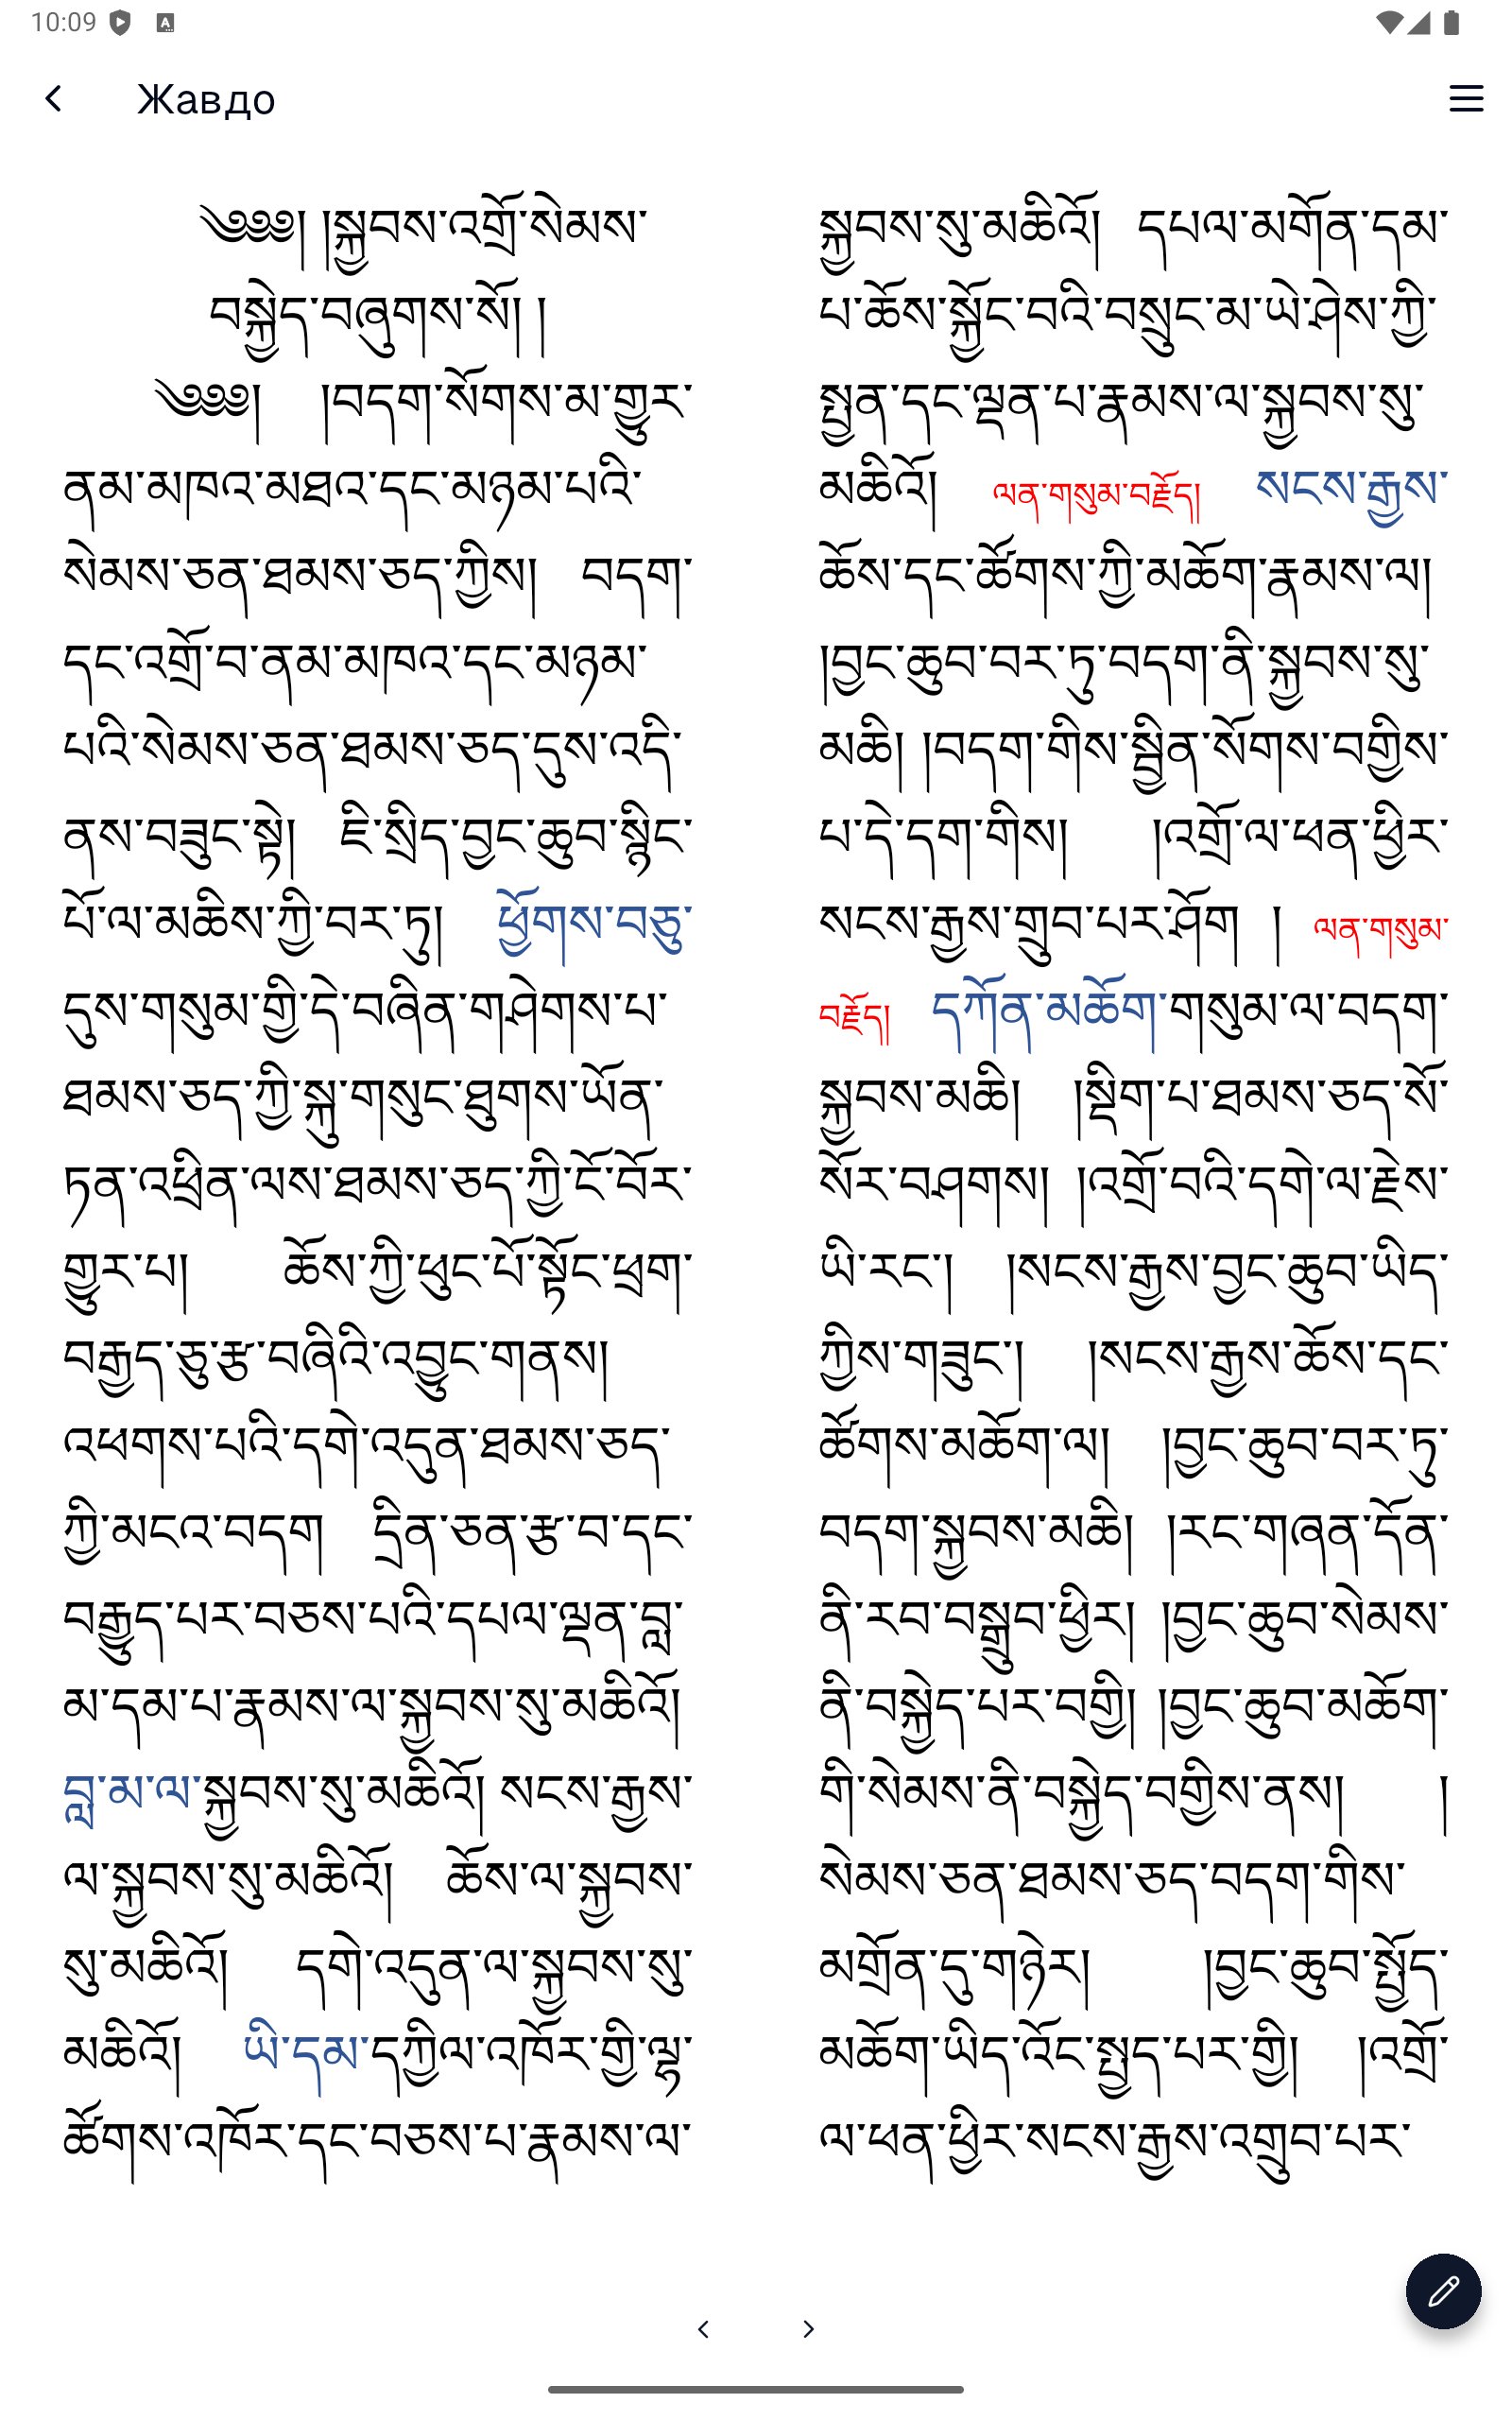 10:09
Жавдо
༄༅༅། །སྐྱབས་འགྲོ་སེམས་
བསྐྱེད་བཞུགས་སོ། །
༄༅༅། །བདག་སོགས་མ་གྱུར་
ནམ་མཁའ་མཐའ་དང་མཉམ་པའི་
སེམས་ཅན་ཐམས་ཅད་ཀྱིས། བདག་
དང་འགྲོ་བ་ནམ་མཁའ་དང་མཉམ་
པའི་སེམས་ཅན་ཐམས་ཅད་དུས་འདི་
ནས་བཟུང་སྟེ། ཇི་སྲིད་བྱང་ཆུབ་སྙིང་
པོ་ལ་མཆིས་ཀྱི་བར་ཏུ། ཕྱོགས་བཅུ་
དུས་གསུམ་གྱི་དེ་བཞིན་གཤེགས་པ་
ཐམས་ཅད་ཀྱི་སྐུ་གསུང་ཐུགས་ཡོན་
ཏན་འཕྲིན་ལས་ཐམས་ཅད་ཀྱི་ངོ་བོར་
གྱུར་པ། ཆོས་ཀྱི་ཕུང་པོ་སྟོང་ཕྲག་
བརྒྱད་ཅུ་རྩ་བཞིའི་འབྱུང་གནས།
འཕགས་པའི་དགེ་འདུན་ཐམས་ཅད་
ཀྱི་མངའ་བདག དྲིན་ཅན་རྩ་བ་དང་
བརྒྱུད་པར་བཅས་པའི་དཔལ་ལྡན་བླ་
མ་དམ་པ་རྣམས་ལ་སྐྱབས་སུ་མཆིའོ།
བླ་མ་ལ་སྐྱབས་སུ་མཆིའོ། སངས་རྒྱས་
ལ་སྐྱབས་སུ་མཆིའོ། ཆོས་ལ་སྐྱབས་
སུ་མཆིའོ། དགེ་འདུན་ལ་སྐྱབས་སུ་
མཆིའོ། ཡི་དམ་དཀྱིལ་འཁོར་གྱི་ལྷ་
ཚོགས་འཁོར་དང་བཅས་པ་རྣམས་ལ་
སྐྱབས་སུ་མཆིའོ། དཔལ་མགོན་དམ་
པ་ཆོས་སྐྱོང་བའི་བསྲུང་མ་ཡེ་ཤེས་ཀྱི་
སྤྱན་དང་ལྡན་པ་རྣམས་ལ་སྐྱབས་སུ་
མཆིའོ། ལན་གསུམ་བརྗོད། སངས་རྒྱས་
ཆོས་དང་ཚོགས་ཀྱི་མཆོག་རྣམས་ལ།
།བྱང་ཆུབ་བར་ཏུ་བདག་ནི་སྐྱབས་སུ་
མཆི། །བདག་གིས་སྦྱིན་སོགས་བགྱིས་
པ་དེ་དག་གིས། །འགྲོ་ལ་ཕན་ཕྱིར་
སངས་རྒྱས་གྲུབ་པར་ཤོག །ལན་གསུམ་
བརྗོད། དཀོན་མཆོག་གསུམ་ལ་བདག་
སྐྱབས་མཆི། །སྡིག་པ་ཐམས་ཅད་སོ་
སོར་བཤགས། །འགྲོ་བའི་དགེ་ལ་རྗེས་
ཡི་རང་། །སངས་རྒྱས་བྱང་ཆུབ་ཡིད་
ཀྱིས་གཟུང་། །སངས་རྒྱས་ཆོས་དང་
ཚོགས་མཆོག་ལ། །བྱང་ཆུབ་བར་ཏུ་
བདག་སྐྱབས་མཆི། །རང་གཞན་དོན་
ནི་རབ་བསྒྲུབ་ཕྱིར། །བྱང་ཆུབ་སེམས་
ནི་བསྐྱེད་པར་བགྱི། །བྱང་ཆུབ་མཆོག་
གི་སེམས་ནི་བསྐྱེད་བགྱིས་ནས། །
སེམས་ཅན་ཐམས་ཅད་བདག་གིས་
མགྲོན་དུ་གཉེར། །བྱང་ཆུབ་སྤྱོད་
མཆོག་ཡིད་འོང་སྤྱད་པར་གྱི། །འགྲོ་
ལ་ཕན་ཕྱིར་སངས་རྒྱས་འགྲུབ་པར་